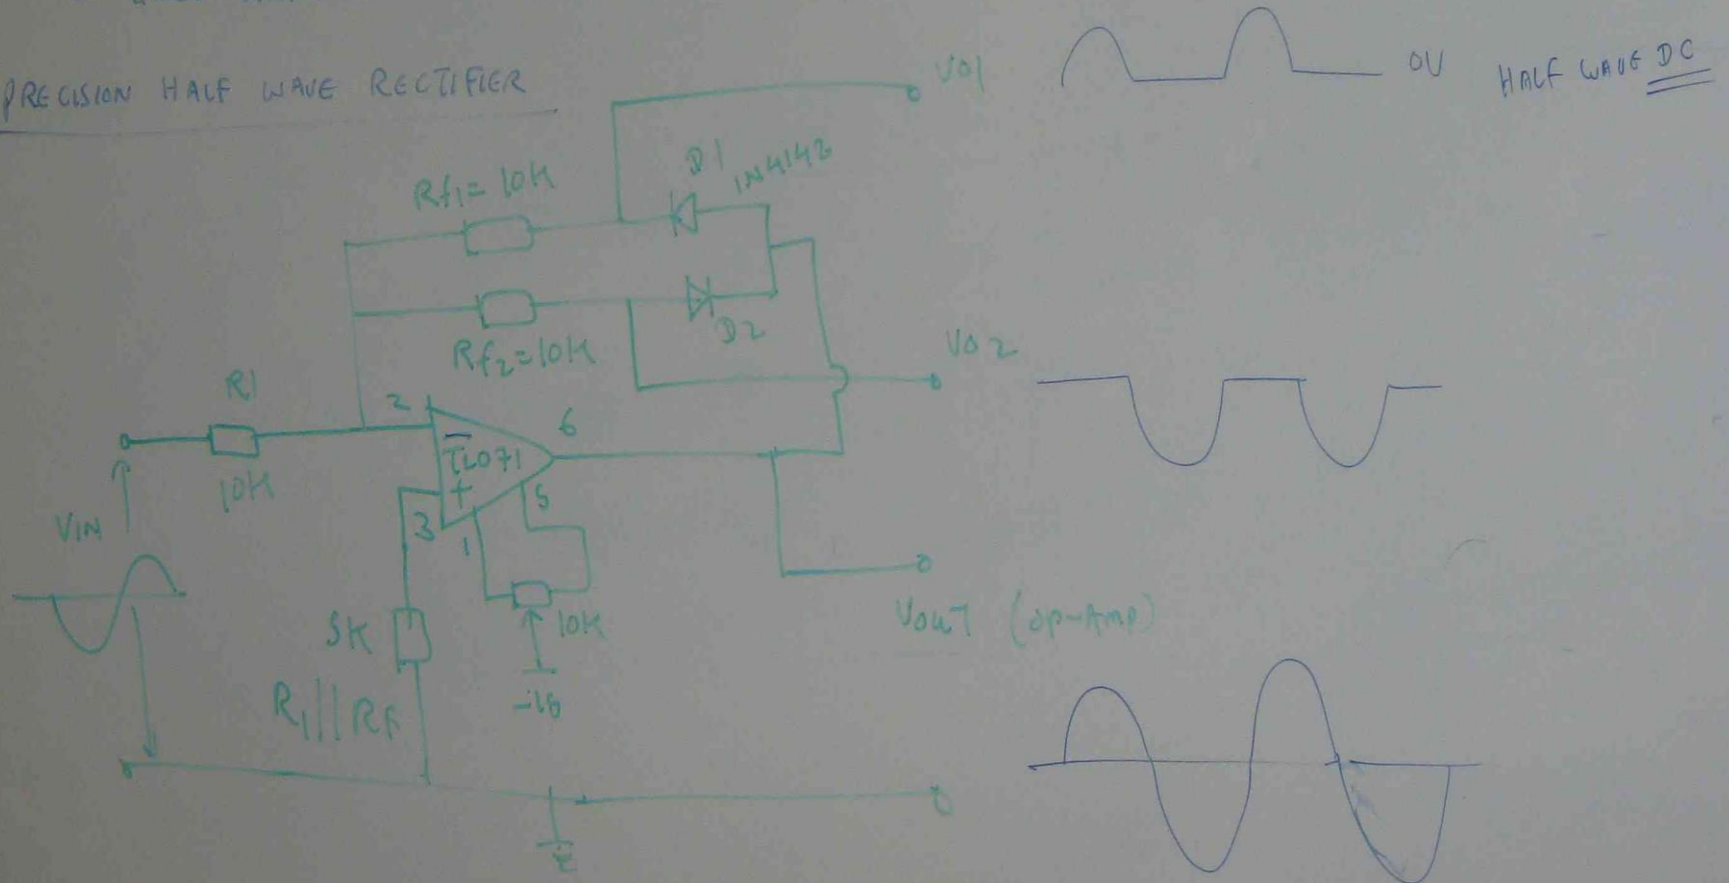 PRECISION HALF WAVE RECTIFIER
VO1
0V
HALF WAVE DC
Rf1 = 10K
D1
1N4142
Rf2 = 10K
D2
VO2
R1
10K
2
6
TL071
-
+
3
5
1
VIN
5K
R1 || RF
10K
VOUT (OP-AMP)